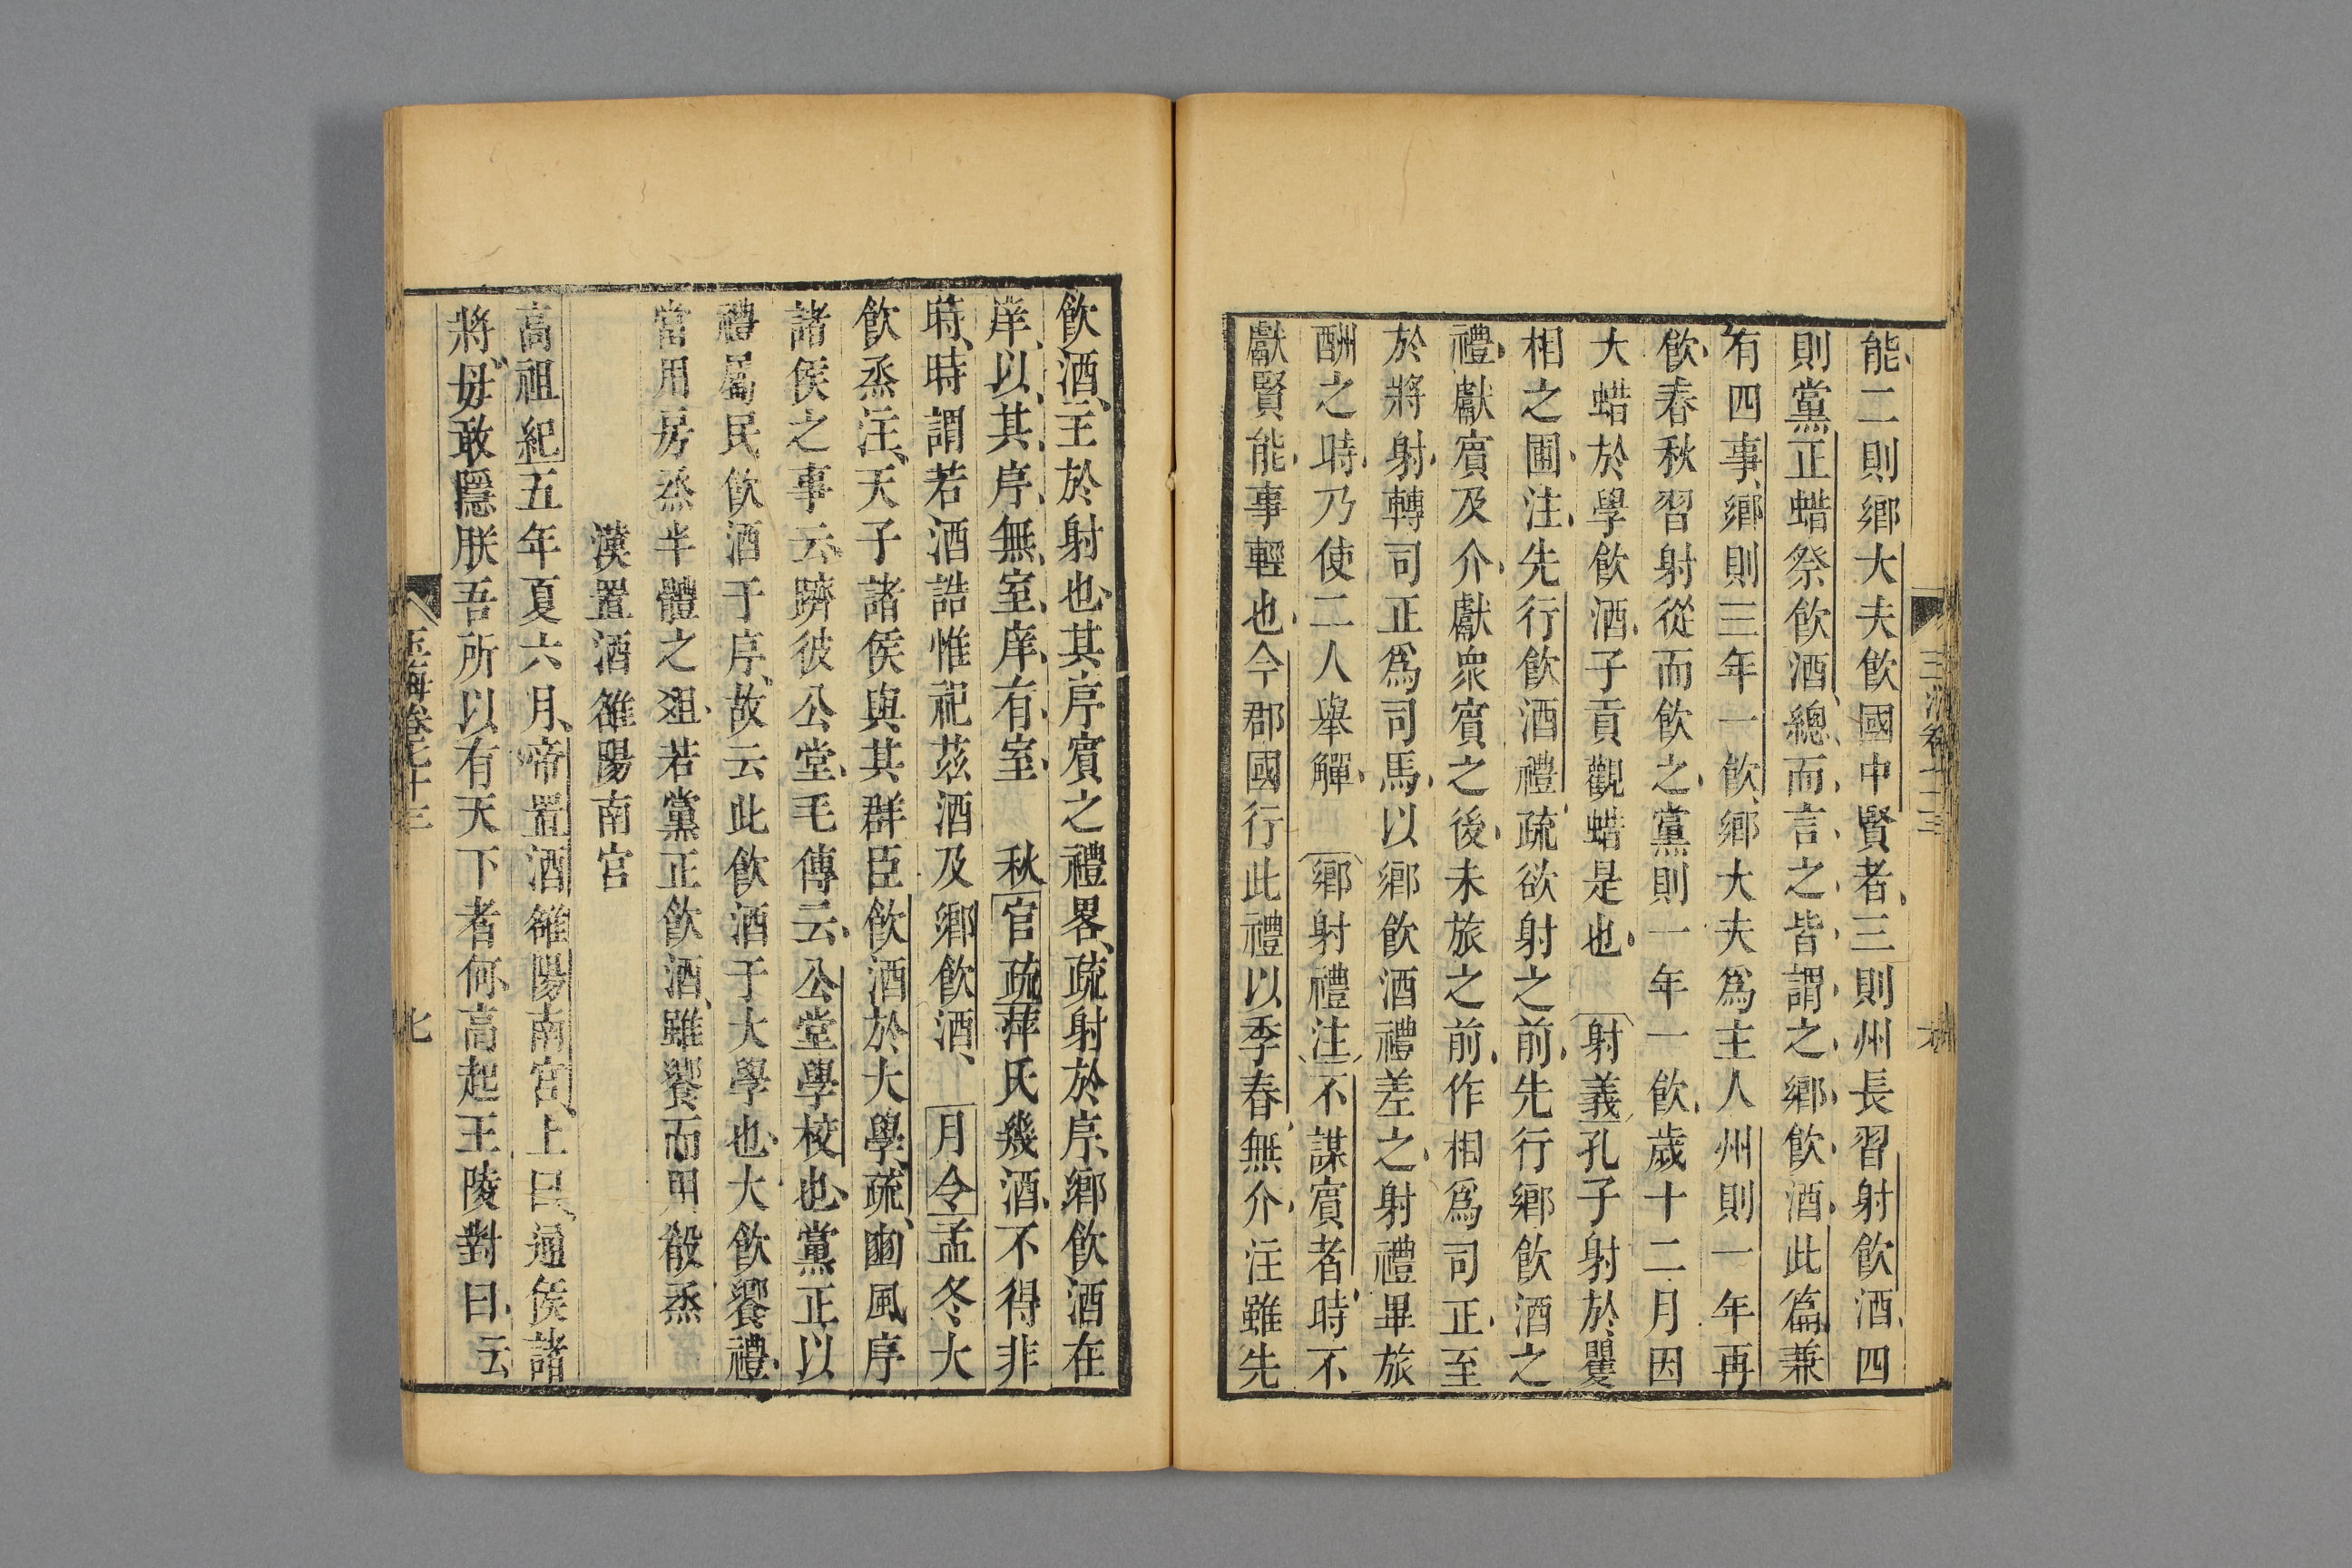 能二則鄉大夫飲國中賢者三則州長習射飲酒四
則黨正蜡祭飲酒總而言之皆謂之鄉飲酒此篇兼
有四事鄉則三年一飲鄉大夫爲主人州則一年再
飲春秋習射從而飲之黨則一年一飲歲十二月因
大蜡於學飲酒子貢觀蜡是也 射義孔子射於矍
相之圃注先行飲酒禮疏欲射之前先行鄉飲酒之
禮獻賓及介獻衆賓之後未旅之前作相爲司正至
於將射轉司正爲司馬以鄉飲酒禮差之射禮畢旅
酬之時乃使二人舉觶 鄉射禮注不謀賓者時不
獻賢能事輕也今郡國行此禮以季春無介注雖先
飲酒主於射也其序賓之禮畧疏射於序鄉飲酒在
庠以其序無室庠有室 秋官疏萍氏幾酒不得非
時時謂若酒誥惟祀茲酒及鄉飲酒 月令孟冬大
飲烝注天子諸侯與其群臣飲酒於大學疏豳風序
諸侯之事云躋彼公堂毛傳云公堂學校也黨正以
禮屬民飲酒于序故云此飲酒于大學也大飲饗禮
當用房烝半體之俎若黨正飲酒雖饗而用殽烝
漢置酒雒陽南宮
高祖紀五年夏六月帝置酒雒陽南宮上曰通侯諸
將毋敢隱朕吾所以有天下者何高起王陵對曰云
玉海卷七十三